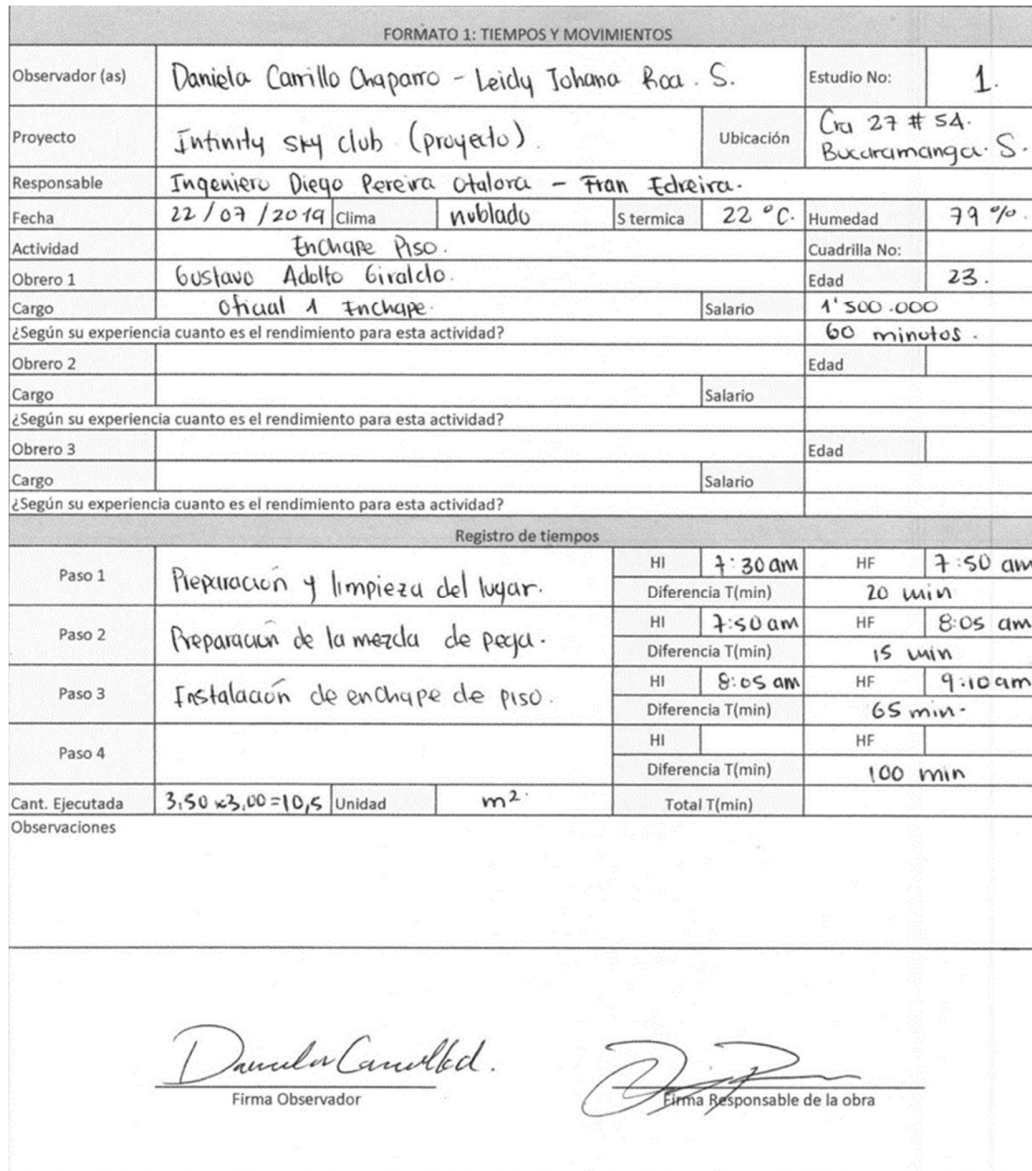 FORMATO 1: TIEMPOS Y MOVIMIENTOS
Observador (as) Daniela Carrillo Chaparro - Leidy Johana Roa. S. Estudio No: 1.
Proyecto Infinity sky club (proyecto). Ubicación Cra 27 # 54. Bucaramanga. S.
Responsable Ingeniero Diego Pereira Otalora - Fran Edreira.
Fecha 22/07/2019 Clima nublado S termica 22 °C. Humedad 79 %.
Actividad Enchape Piso. Cuadrilla No:
Obrero 1 Gustavo Adolfo Giraldo. Edad 23.
Cargo Oficial 1 Enchape. Salario 1'500.000
¿Según su experiencia cuanto es el rendimiento para esta actividad? 60 minutos.
Obrero 2 Edad
Cargo Salario
¿Según su experiencia cuanto es el rendimiento para esta actividad?
Obrero 3 Edad
Cargo Salario
¿Según su experiencia cuanto es el rendimiento para esta actividad?
Registro de tiempos
Paso 1 Preparación y limpieza del lugar. HI 7:30 am HF 7:50 am
Diferencia T(min) 20 min
Paso 2 Preparación de la mezcla de pega. HI 7:50 am HF 8:05 am
Diferencia T(min) 15 min
Paso 3 Instalación de enchape de piso. HI 8:05 am HF 9:10 am
Diferencia T(min) 65 min.
Paso 4 HI HF
Diferencia T(min) 100 min
Cant. Ejecutada 3,50 x 3,00 = 10,5 Unidad m². Total T(min)
Observaciones
Firma Observador Firma Responsable de la obra